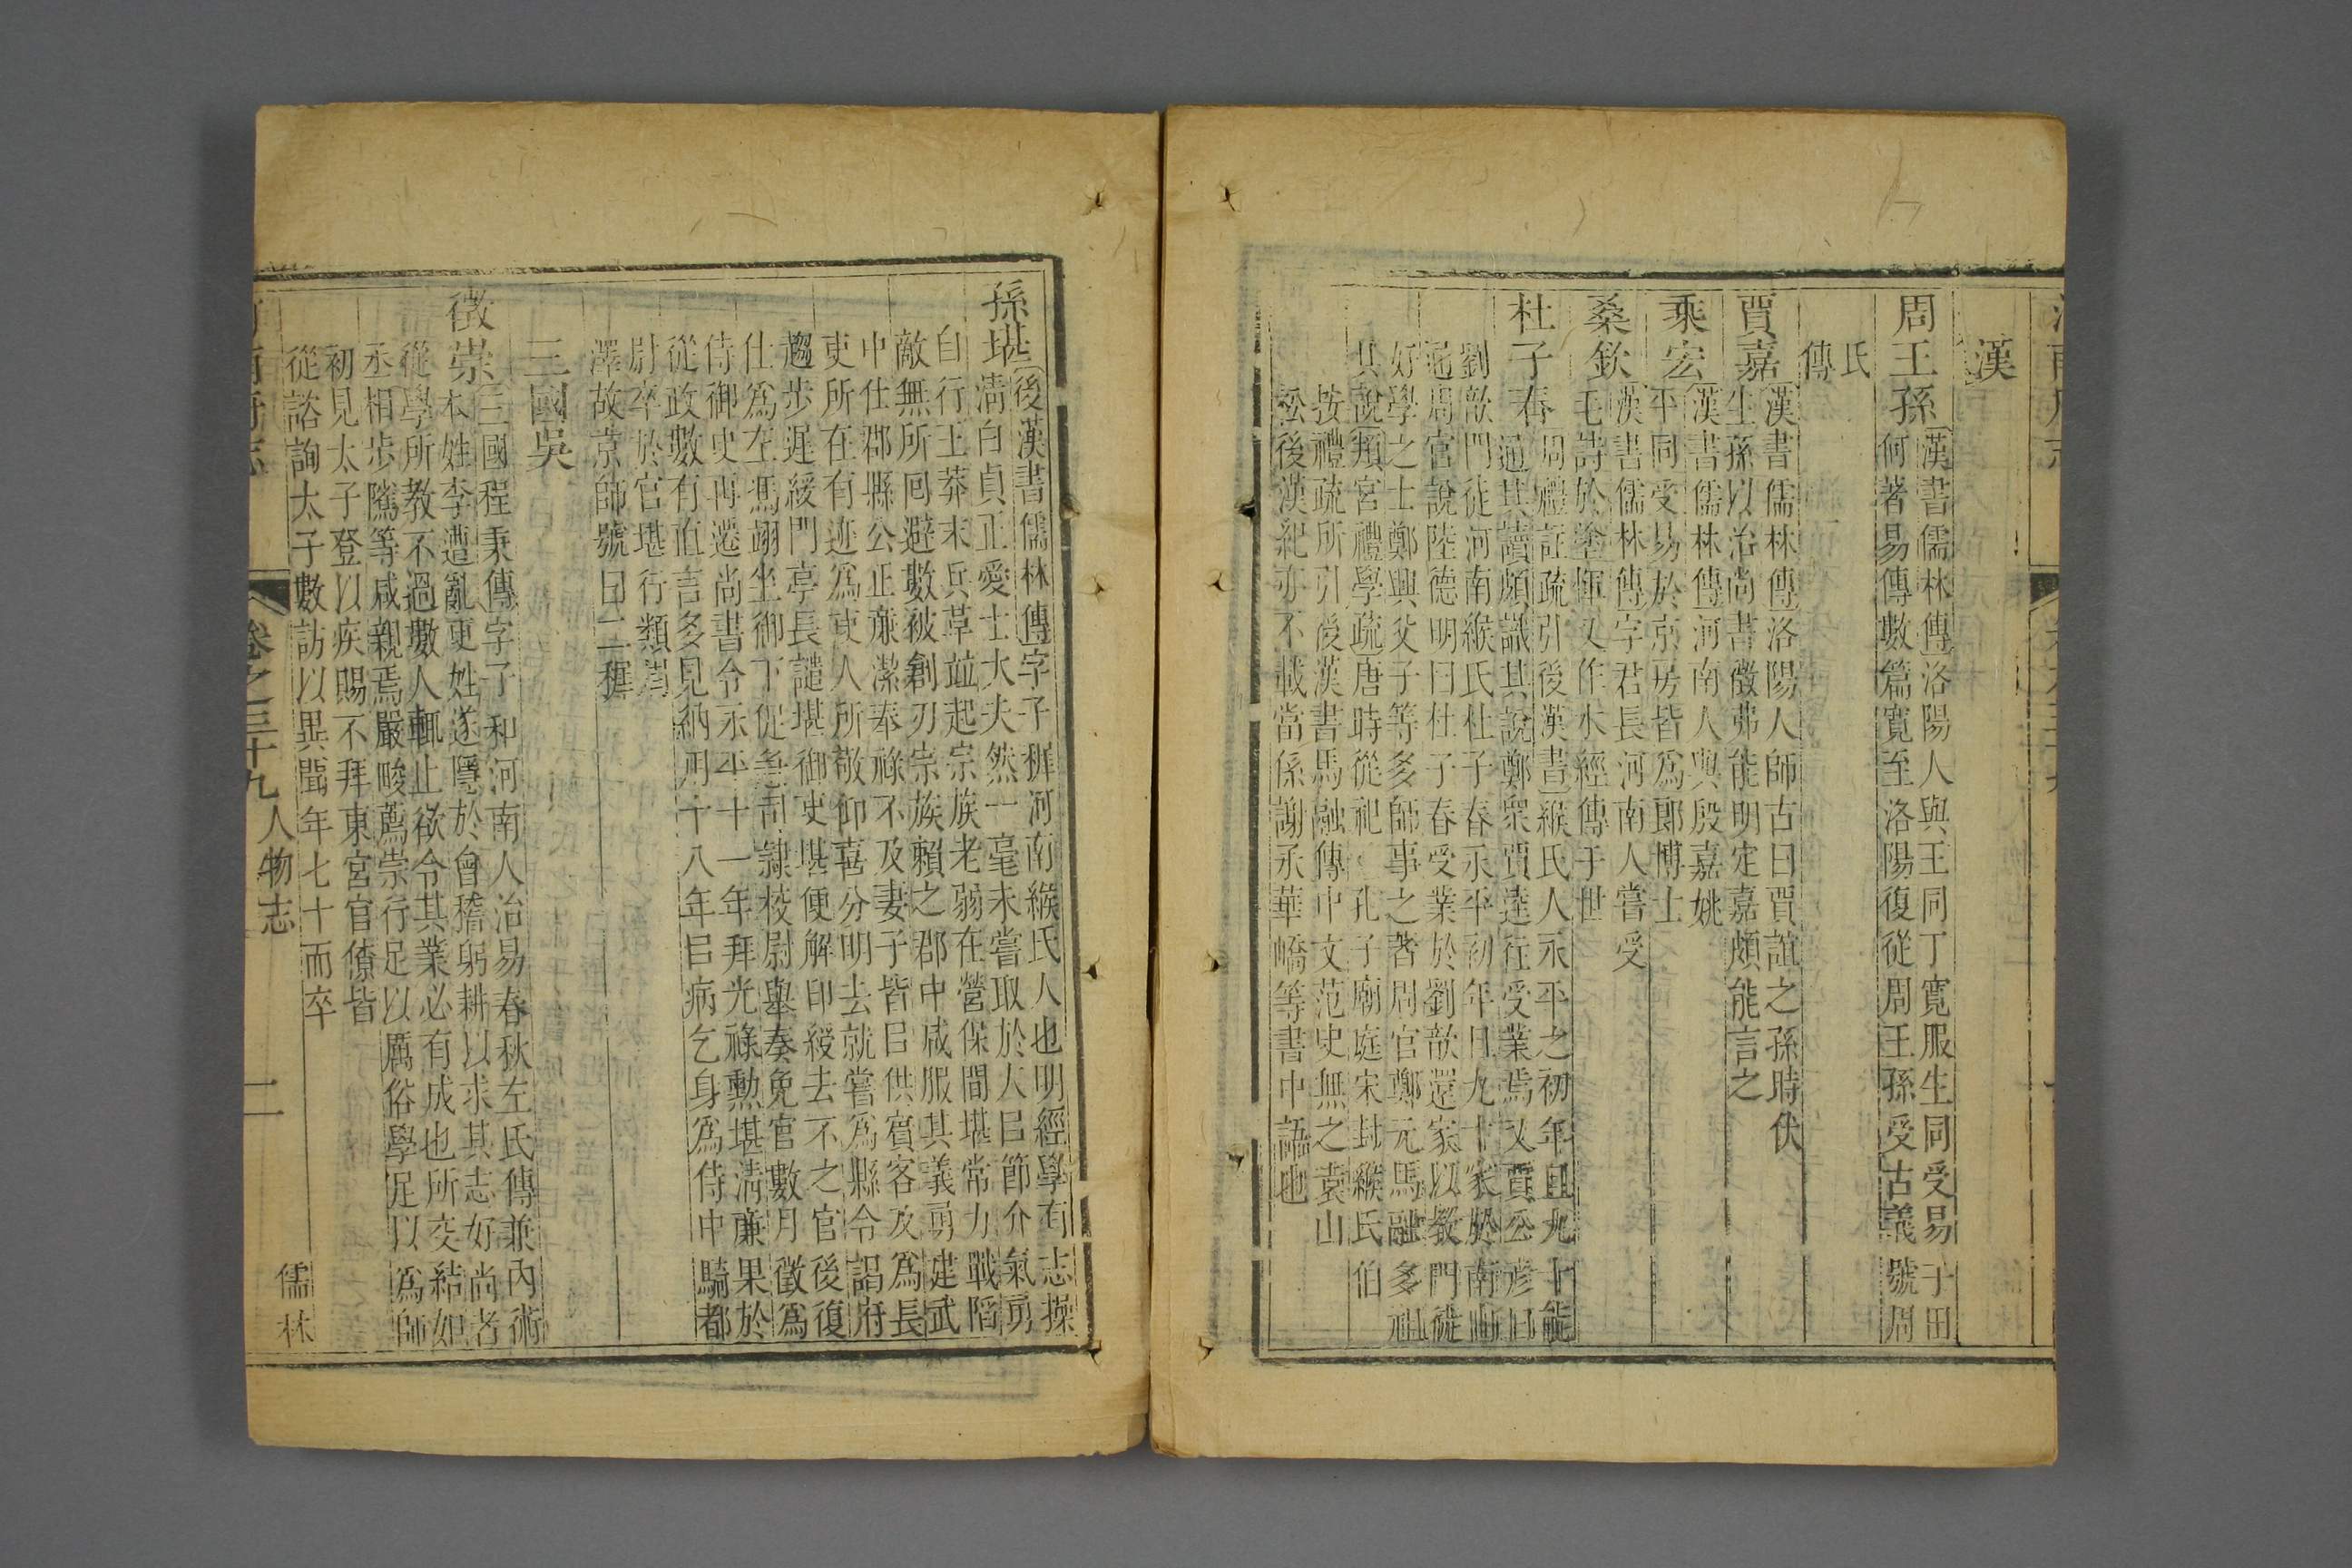 漢
周王孫
漢書儒林傳洛陽人與王同丁寬服生同受易于田
何著易傳數篇寬至洛陽復從周王孫受古義號周
氏
傳
賈嘉
漢書儒林傳洛陽人師古曰賈誼之孫時伏
生孫以治尚書徵弗能明定嘉頗能言之
乘宏
漢書儒林傳河南人與殷嘉姚
平同受易於京房皆爲郎博士
桑欽
漢書儒林傳字君長河南人嘗受
毛詩於塗惲又作水經傳于世
杜子春
周禮註疏引後漢書緱氏人永平之初年且九十能
通其讀頗識其說鄭衆賈逵往受業焉又賈公彥曰
劉歆門徒河南緱氏杜子春永平初年且九十家於南山
周官說陸德明曰杜子春受業於劉歆還家以教門徒
好學之士鄭興父子等多師事之著周官鄭元馬融多祖
其說頖宮禮學疏唐時從祀孔子廟庭宋封緱氏伯
按禮疏所引後漢書馬融傳中文范史無之袁山
松後漢紀亦不載當係謝承華嶠等書中語也
孫堪
後漢書儒林傳字子穉河南緱氏人也明經學有志操
清白貞正愛士大夫然一毫未嘗取於人㠯節介氣勇
自行王莽末兵革並起宗族老弱在營保間堪常力戰陷
敵無所回避數被創刃宗族賴之郡中咸服其義勇建武
中仕郡縣公正廉潔奉祿不及妻子皆㠯供賓客及爲長
吏所在有迹爲吏人所敬仰喜分明去就嘗爲縣令謁府
趨步遲緩門亭長譴堪御吏堪便解印綬去不之官後復
仕爲左馮翊坐御下促急司隸校尉舉奏免官數月徵爲
侍御史再遷尚書令永平十一年拜光祿勳堪清廉果於
從政數有直言多見納用十八年㠯病乞身爲侍中騎都
尉卒於官堪行類周
澤故京師號曰二穉
三國吳
徵崇
三國程秉傳字子和河南人治易春秋左氏傳兼內術
本姓李遭亂更姓遂隱於會稽躬耕以求其志好尚者
從學所教不過數人輒止欲令其業必有成也所交結如
丞相步隲等咸親焉嚴畯薦崇行足以厲俗學足以爲師
初見太子登以疾賜不拜東宮官僚皆
從諮詢太子數訪以異聞年七十而卒
卷之三十九 人物志 二 儒林